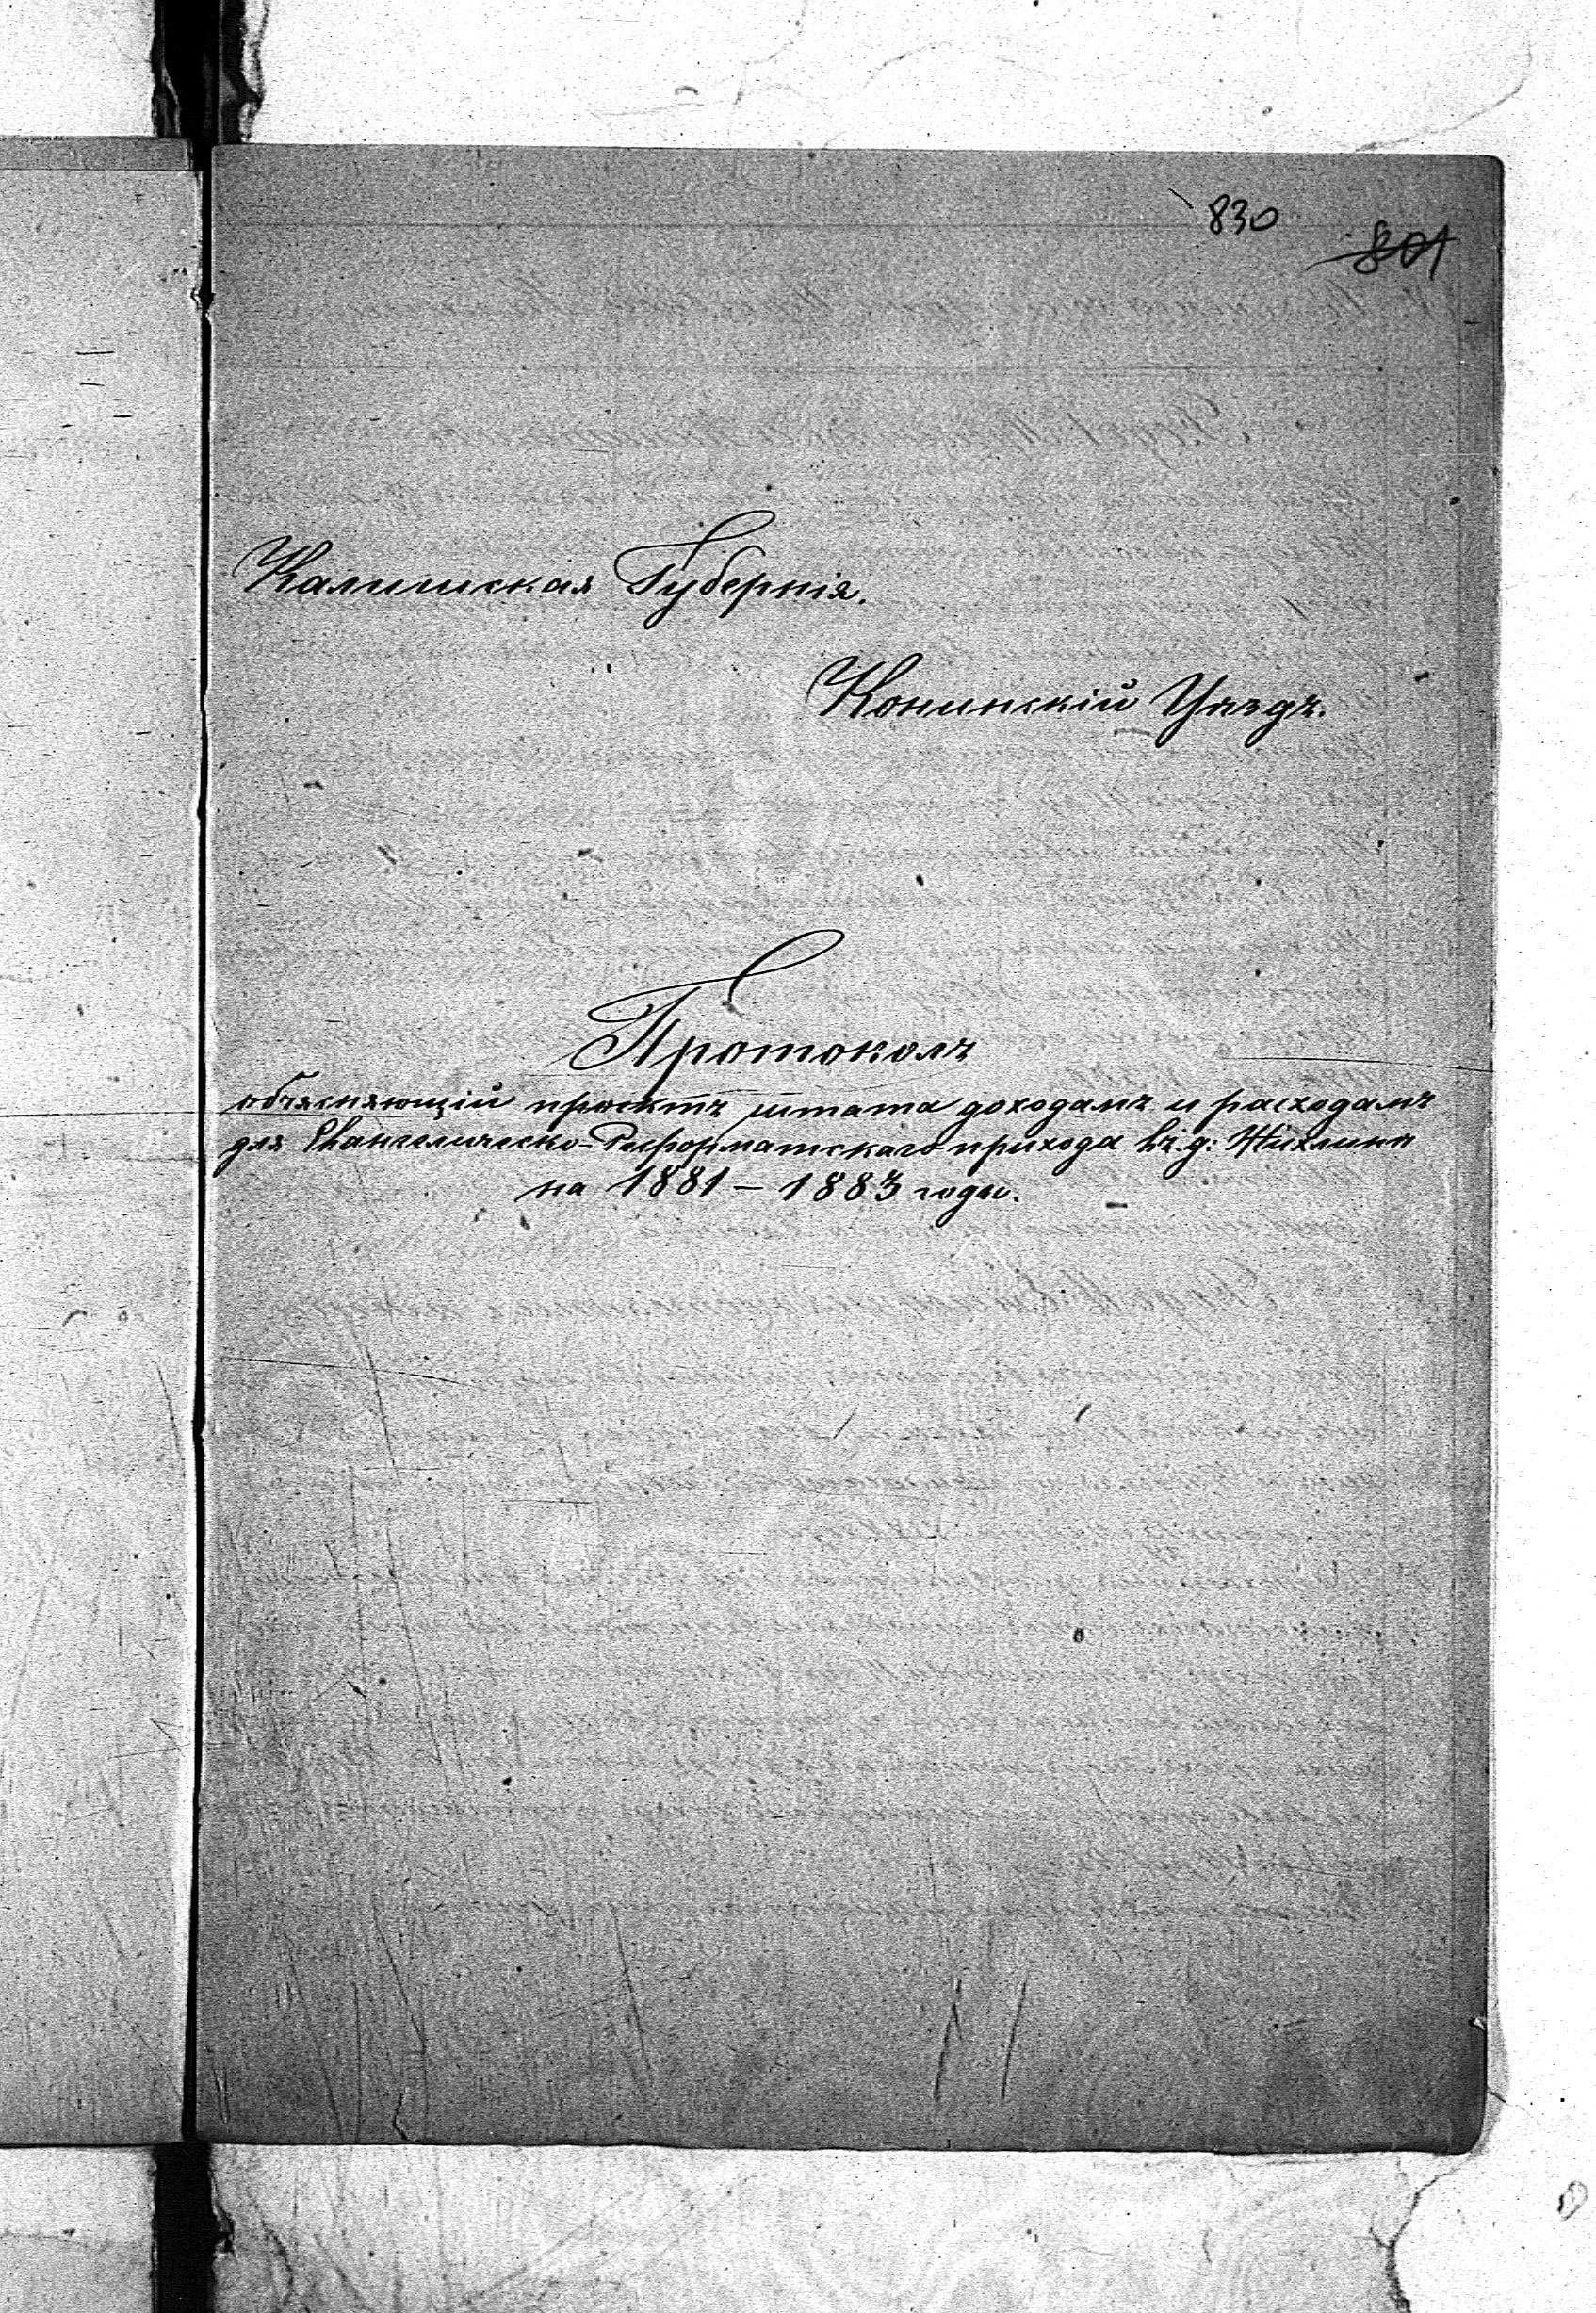 830
801
Калишская Губернія.
Конинскій Уѣздъ.
Протоколъ
объясняющій проектъ штата доходамъ и расходамъ
для Евангелическо-Реформатскаго прихода въ д: Жихлинѣ
на 1881 – 1883 годы.